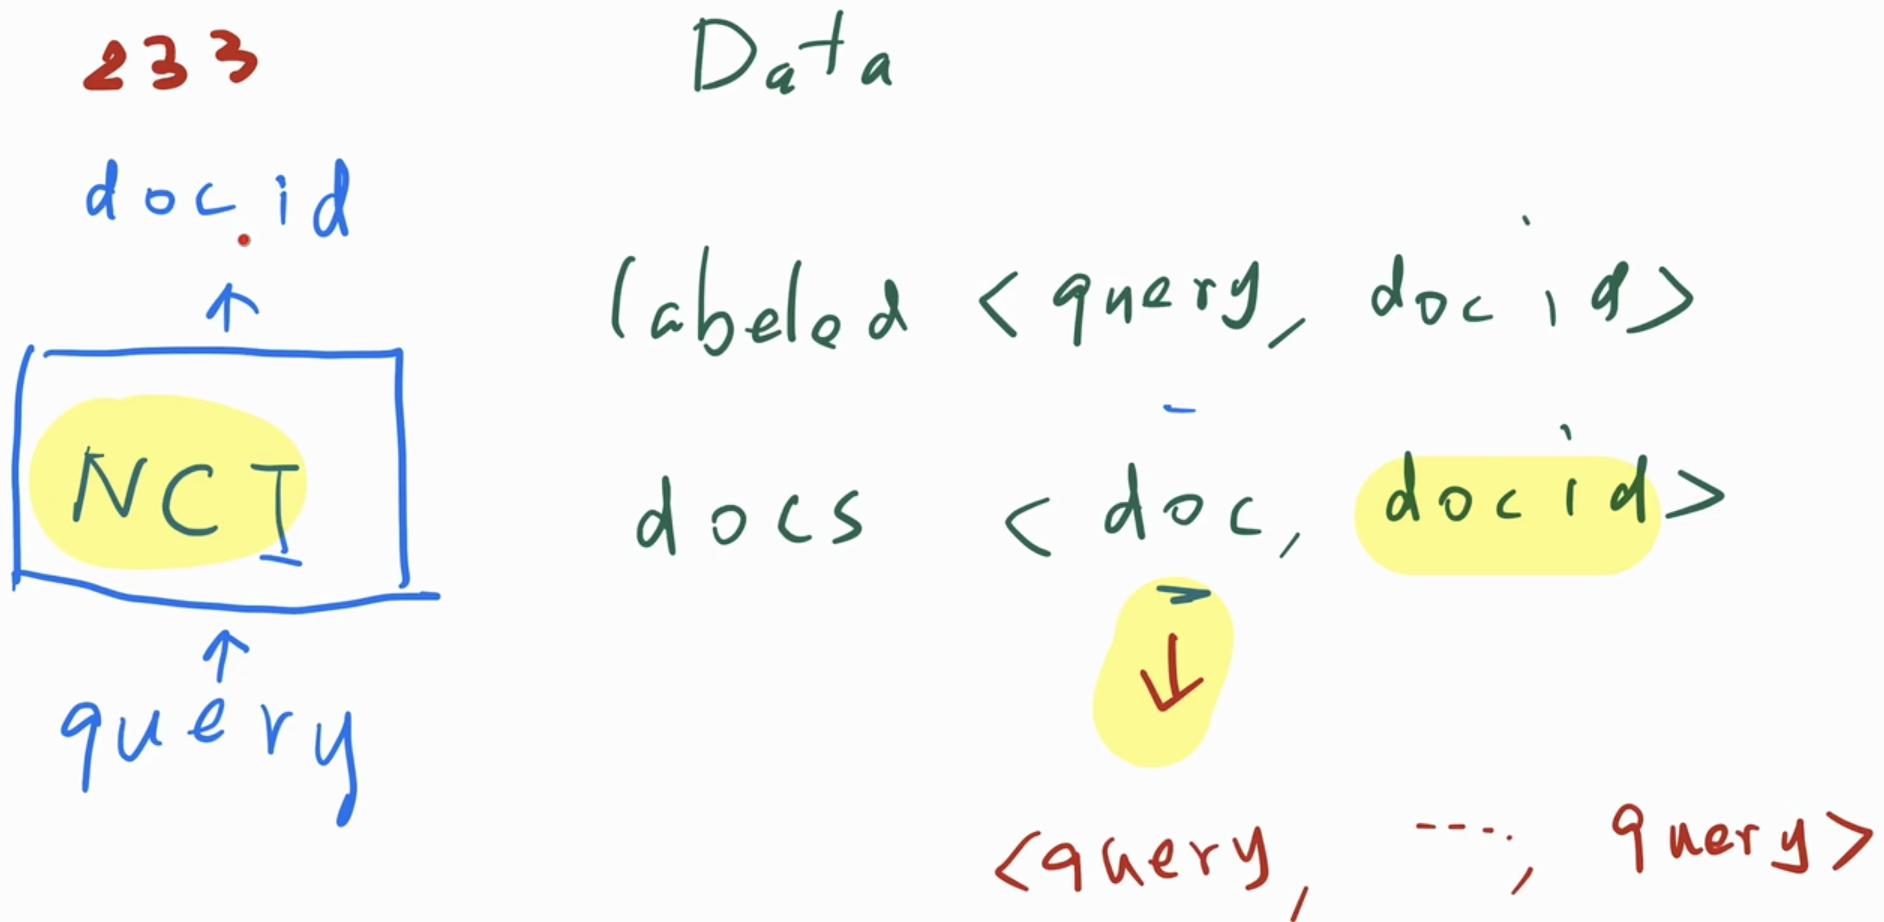 233
doc id
NCI
query
Data
labeled <query, doc id>
docs <doc, doc id>
<query, ----, query>